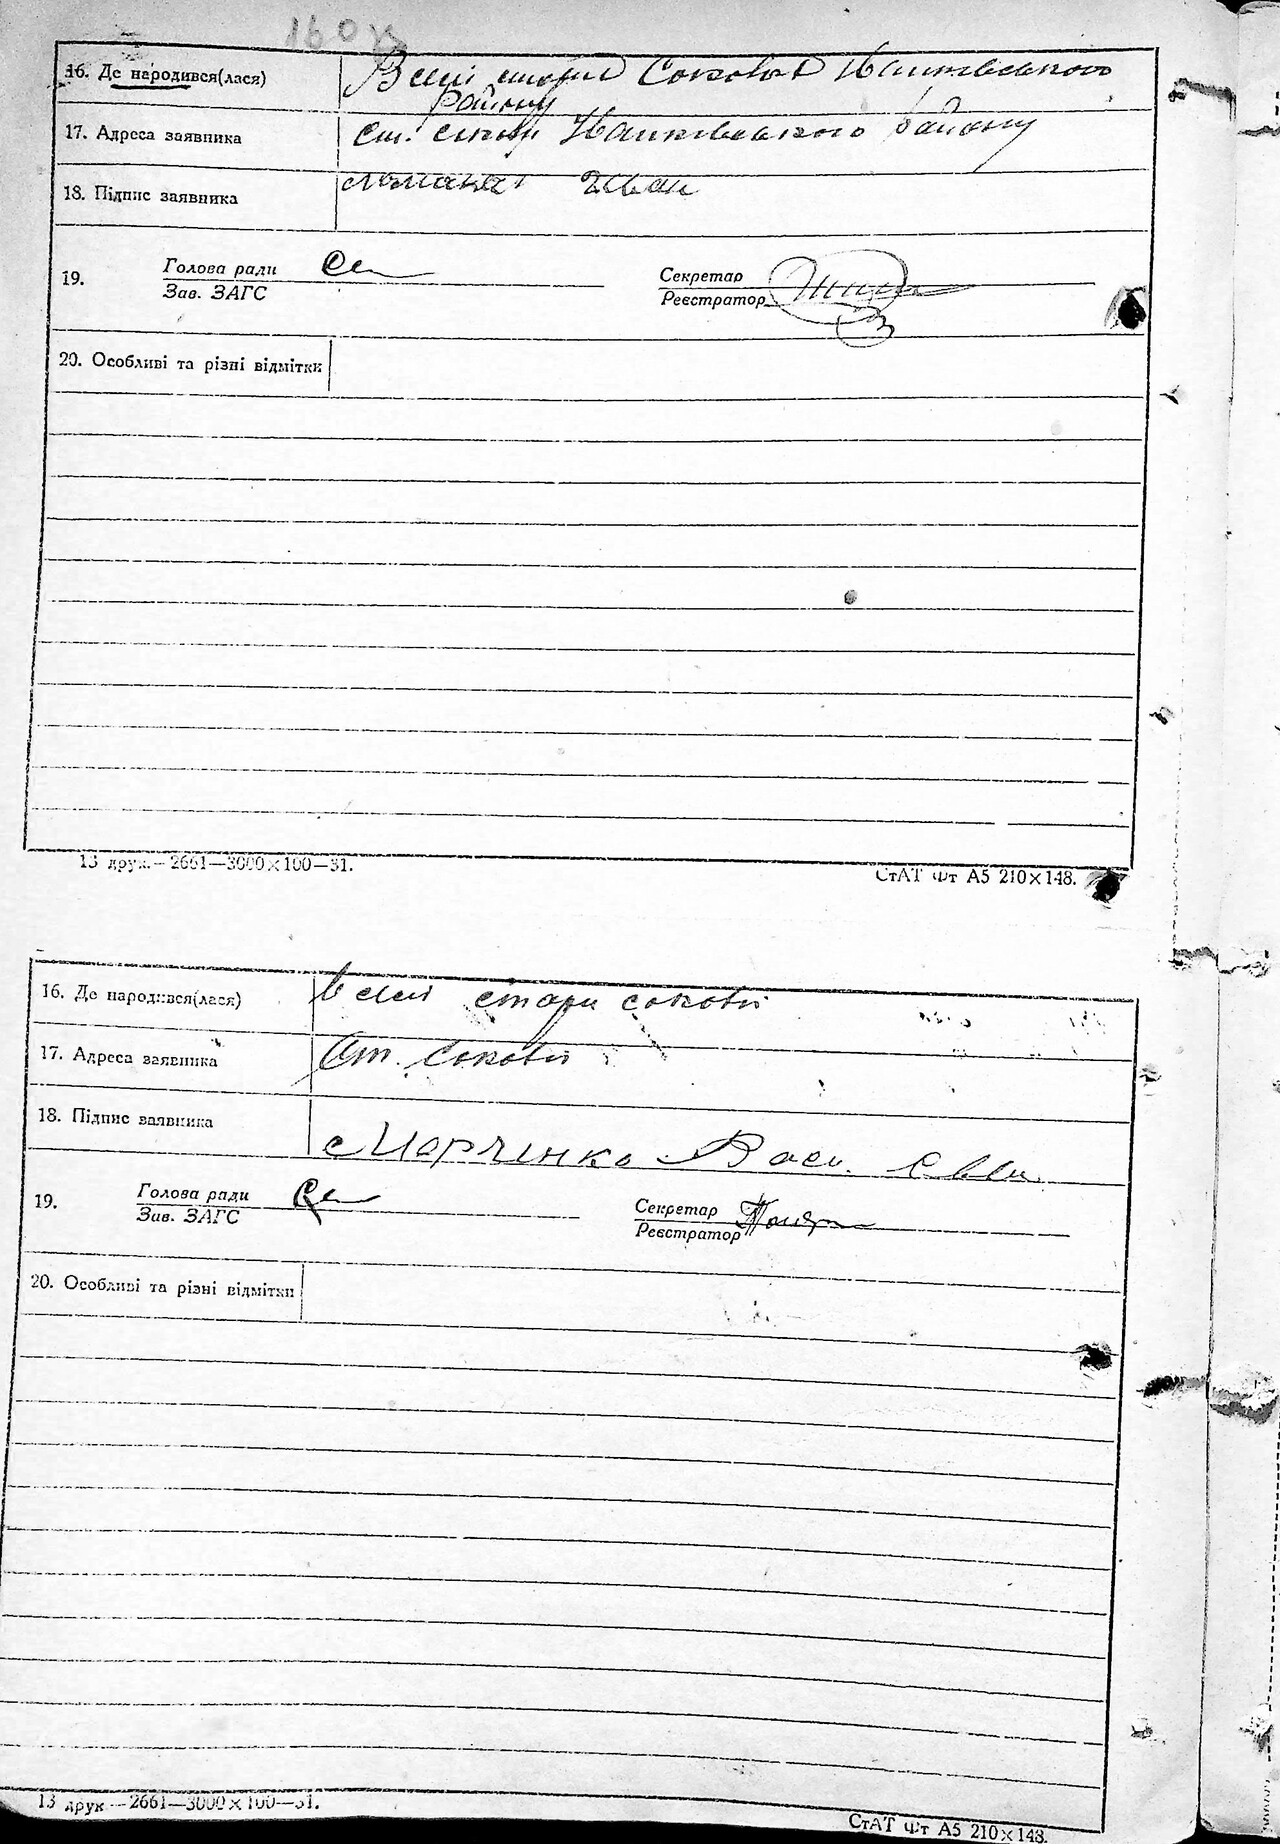 160
16. Де народився(лася) В селі старі Соковы Іванківського
району
17. Адреса заявника ст. сокои Іванківського району
18. Підпис заявника Іван
19. Голова ради Секретар
Зав. ЗАГС Реєстратор
20. Особливі та різні відмітки
13 друк.—2661—3000×100—31.
СтАТ Фт А5 210×148.
16. Де народився(лася) В селі стари сокови
17. Адреса заявника Ст. Сокови
18. Підпис заявника Марченко Васи.
19. Голова ради Секретар
Зав. ЗАГС Реєстратор
20. Особливі та різні відмітки
13 друк—2661—3000×100—31.
СтАТ Фт А5 210×148.